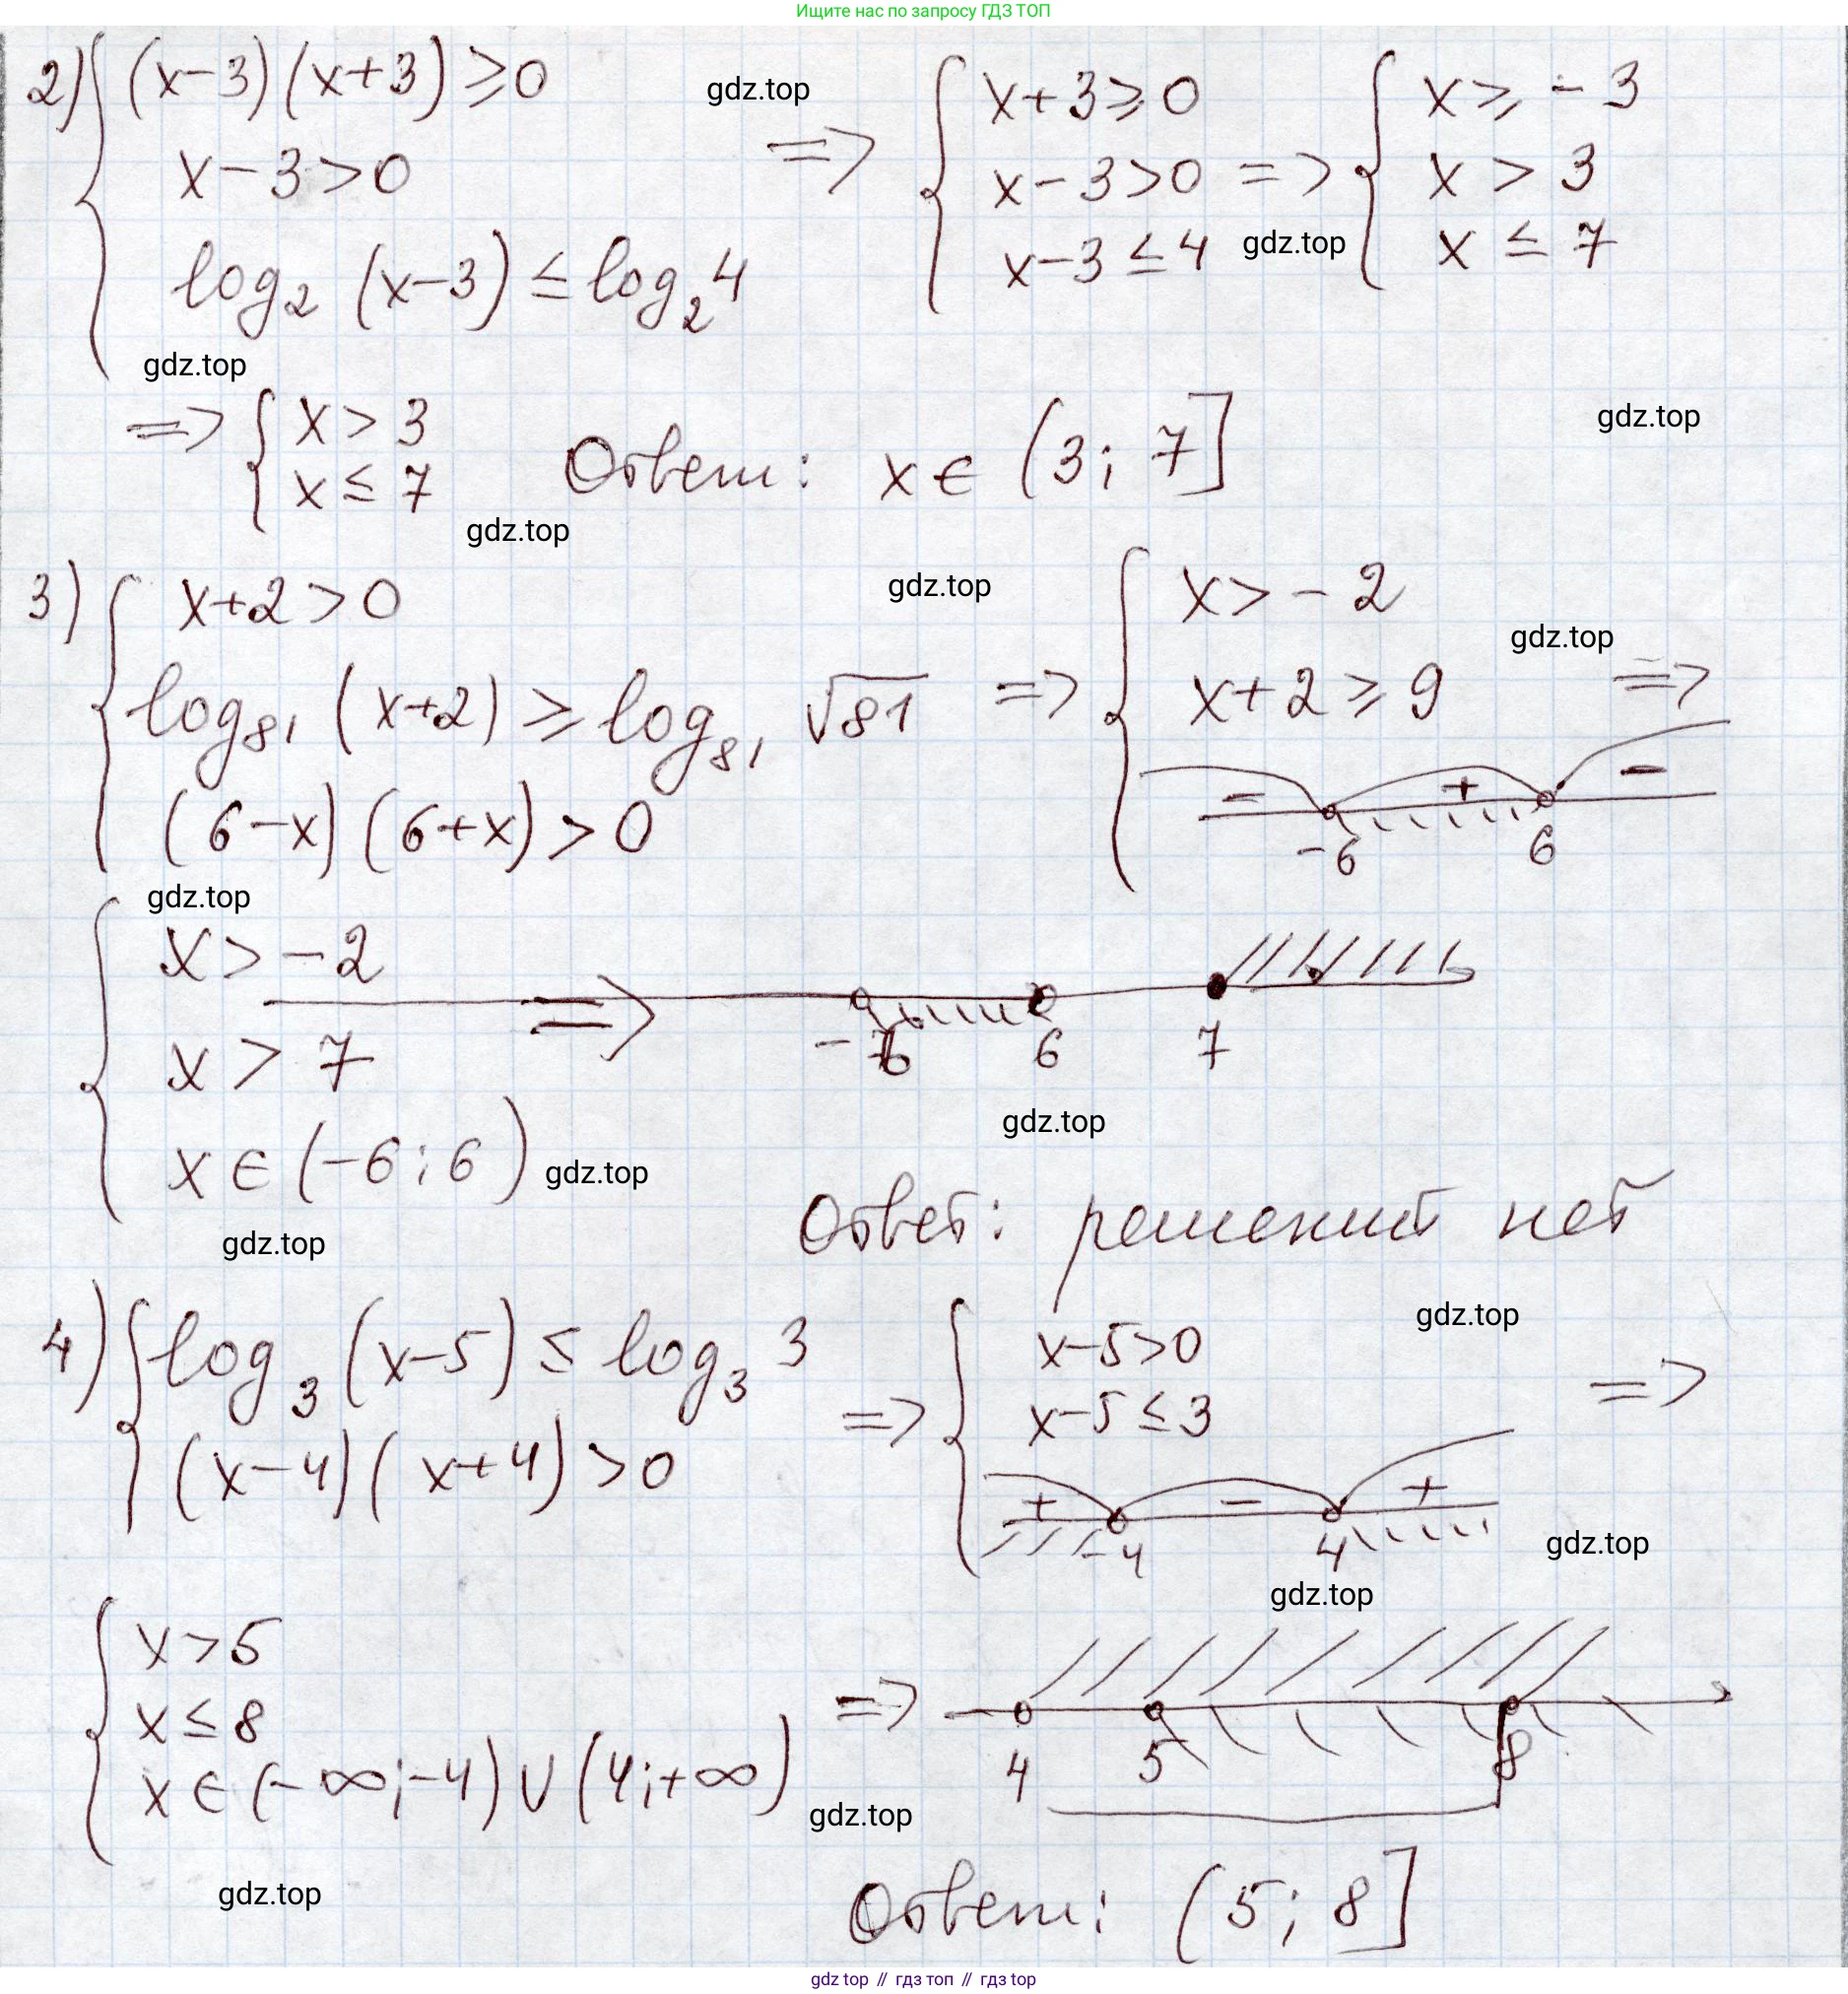 Ищите нас по запросу ГДЗ ТОП
2) { (x-3)(x+3) ≥ 0
x-3 > 0
log₂ (x-3) ≤ log₂ 4
gdz.top
=> { x+3 ≥ 0
x-3 > 0
x-3 ≤ 4
=> { x ≥ -3
x > 3
x ≤ 7
gdz.top
gdz.top
=> { x > 3
x ≤ 7
Ответ: x ∈ (3; 7]
gdz.top
gdz.top
3) { x+2 > 0
log₈₁ (x+2) ≥ log₈₁ √81
(6-x)(6+x) > 0
gdz.top
=> { x > -2
x+2 ≥ 9
=>
gdz.top
- + -
-6 6
gdz.top
{ x > -2
x > 7
x ∈ (-6; 6)
=>
-6 6 7
gdz.top
gdz.top
gdz.top
Ответ: решений нет
4) { log₃ (x-5) ≤ log₃ 3
(x-4)(x+4) > 0
=> { x-5 > 0
x-5 ≤ 3
=>
gdz.top
+ - +
-4 4
gdz.top
gdz.top
{ x > 5
x ≤ 8
x ∈ (-∞; -4) ∪ (4; +∞)
=>
4 5 8
gdz.top
gdz.top
Ответ: (5; 8]
gdz top // гдз топ // гдз top